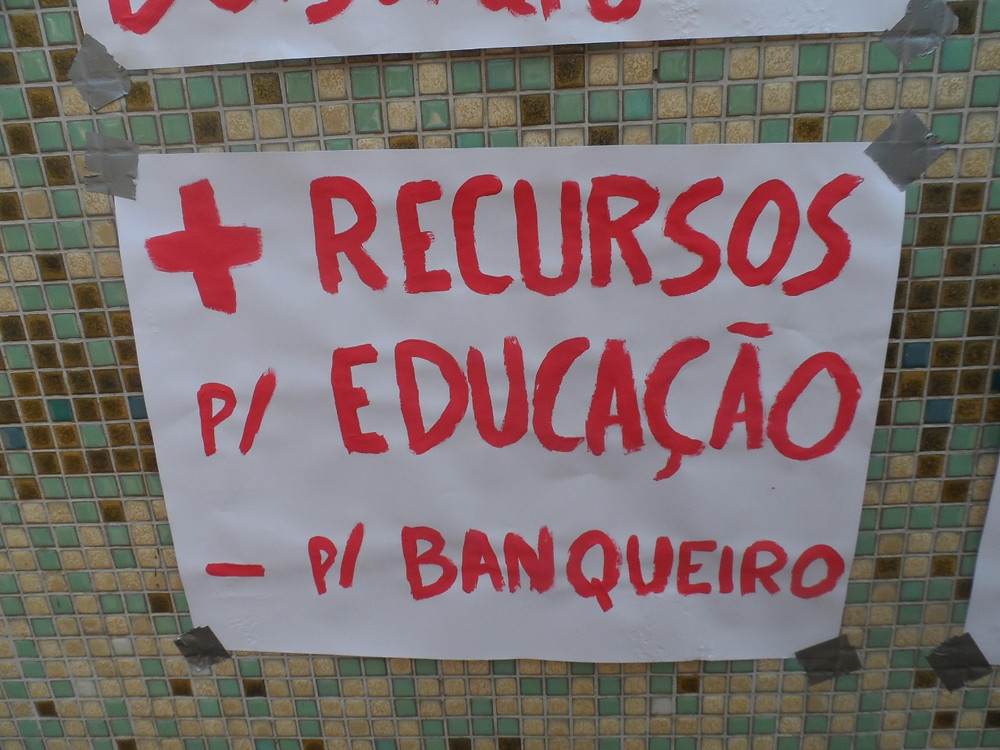 + RECURSOS
p/ EDUCAÇÃO
- p/ BANQUEIRO